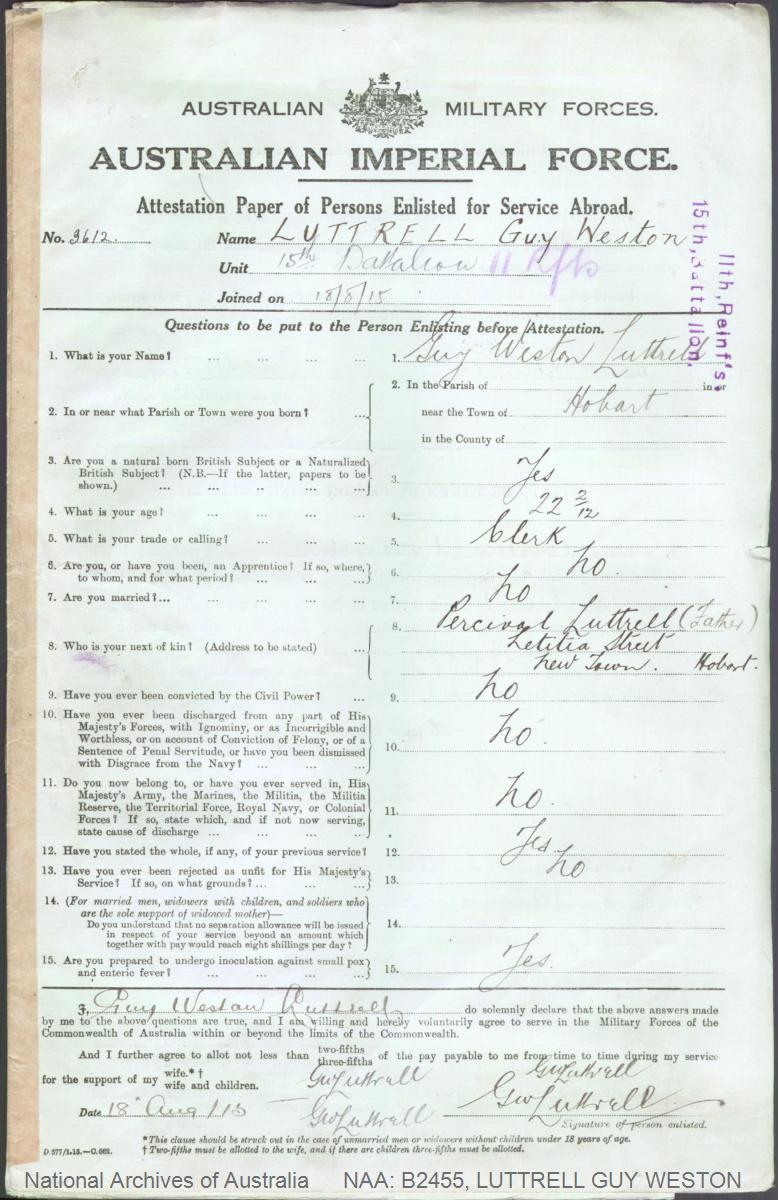 AUSTRALIAN MILITARY FORCES.
AUSTRALIAN IMPERIAL FORCE.
Attestation Paper of Persons Enlisted for Service Abroad.
No. 3612. Name LUTTRELL Guy Weston
Unit 15th Battalion 11 Rfts
Joined on 18/8/15
11th, Reinf's,
15th, Battalion,
Questions to be put to the Person Enlisting before Attestation.
1. What is your Name? ... ... ... 1. Guy Weston Luttrell
2. In or near what Parish or Town were you born? ...
2. In the Parish of in or
near the Town of Hobart
in the County of
3. Are you a natural born British Subject or a Naturalized
British Subject? (N.B.—If the latter, papers to be
shown.) ... ... ... ... ... 3. Yes
4. What is your age? ... ... ... 4. 22 2/12
5. What is your trade or calling? ... ... ... 5. Clerk
6. Are you, or have you been, an Apprentice? If so, where,
to whom, and for what period? ... ... ... 6. No.
7. Are you married?... ... ... ... ... 7. No
8. Who is your next of kin? (Address to be stated) ...
8. Percival Luttrell (Father)
Letitia Street
New Town. Hobart.
9. Have you ever been convicted by the Civil Power? ... 9. No
10. Have you ever been discharged from any part of His
Majesty's Forces, with Ignominy, or as Incorrigible and
Worthless, or on account of Conviction of Felony, or of a
Sentence of Penal Servitude, or have you been dismissed
with Disgrace from the Navy? ... ... ... 10. No.
11. Do you now belong to, or have you ever served in, His
Majesty's Army, the Marines, the Militia, the Militia
Reserve, the Territorial Force, Royal Navy, or Colonial
Forces? If so, state which, and if not now serving,
state cause of discharge ... ... ... ... 11. No.
12. Have you stated the whole, if any, of your previous service? 12. Yes
13. Have you ever been rejected as unfit for His Majesty's
Service? If so, on what grounds? ... ... ... 13. No
14. (For married men, widowers with children, and soldiers who
are the sole support of widowed mother)—
Do you understand that no separation allowance will be issued
in respect of your service beyond an amount which
together with pay would reach eight shillings per day? 14.
15. Are you prepared to undergo inoculation against small pox
and enteric fever? ... ... ... ... 15. Yes.
I, Guy Weston Luttrell do solemnly declare that the above answers made
by me to the above questions are true, and I am willing and hereby voluntarily agree to serve in the Military Forces of the
Commonwealth of Australia within or beyond the limits of the Commonwealth.
And I further agree to allot not less than two-fifths three-fifths of the pay payable to me from time to time during my service
for the support of my wife.*† wife and children. GWLuttrell GWLuttrell
Date 18 Aug /15 GWLuttrell GWLuttrell
Signature of person enlisted.
* This clause should be struck out in the case of unmarried men or widowers without children under 18 years of age.
D.577/1.15.—C.662. † Two-fifths must be allotted to the wife, and if there are children three-fifths must be allotted.
National Archives of Australia NAA: B2455, LUTTRELL GUY WESTON